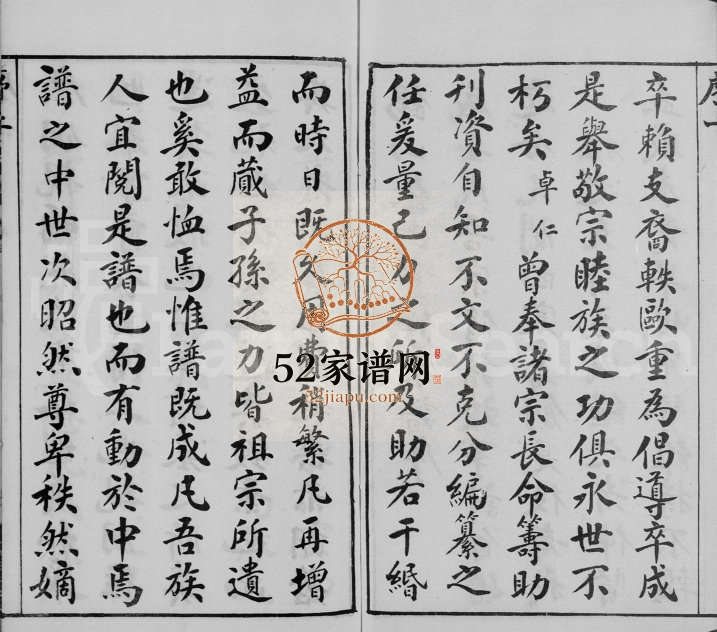 序一
卒賴支裔軼歐重為倡導卒成
是舉敬宗睦族之功俱永世不
朽矣卓仁曾奉諸宗長命籌助
刊資自知不文不克分編纂之
任爰量己力之所及助若干緡
而時日既久用費稍繁凡再增
益而蕆子孫之力皆祖宗所遺
也奚敢恤焉惟譜既成凡吾族
人宜閱是譜也而有動於中焉
譜之中世次昭然尊卑秩然嫡
52家谱网
52jiapu.com